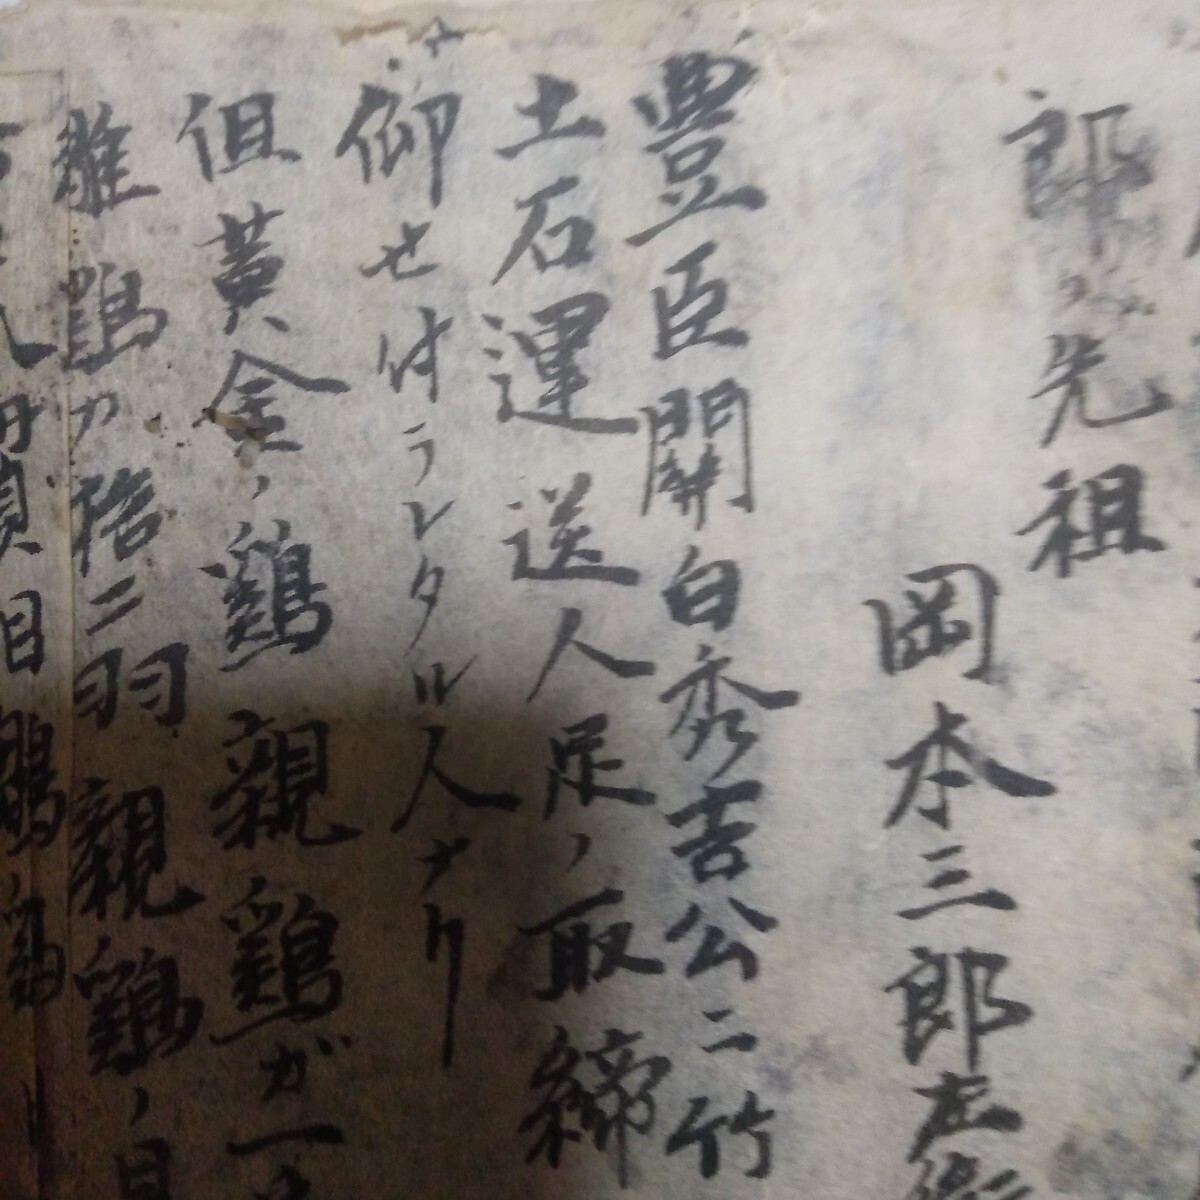 郎ノ先祖
岡本三郎左衛
豊臣関白秀吉公ニ竹
土石運送人足ノ取締
仰せ付ラレタル人ナリ
但黄金ノ鶏親鶏ガ一
雛鶏ガ拾二羽親鶏ノ目
貫目